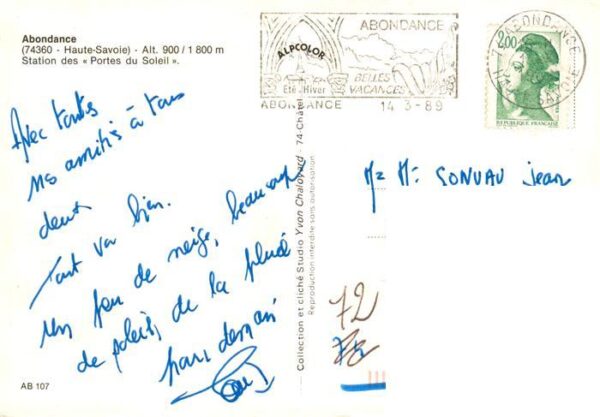 Abondance
(74360 - Haute-Savoie) - Alt. 900 / 1 800 m
Station des « Portes du Soleil ».
Avec toutes
nos amitiés à tous
deux.
Tout va bien.
Un peu de neige, beaucoup
de soleil, de la pluie
pour demain
AB 107
Collection et cliché Studio Yvon Chaloyard - 74-Châtel
Reproduction interdite sans autorisation
ALPCOLOR
Eté-Hiver
ABONDANCE
BELLES
VACANCES
ABONDANCE
14-3-89
ABONDANCE
2,00
REPUBLIQUE FRANÇAISE
Mr Me SONVAU Jean
72